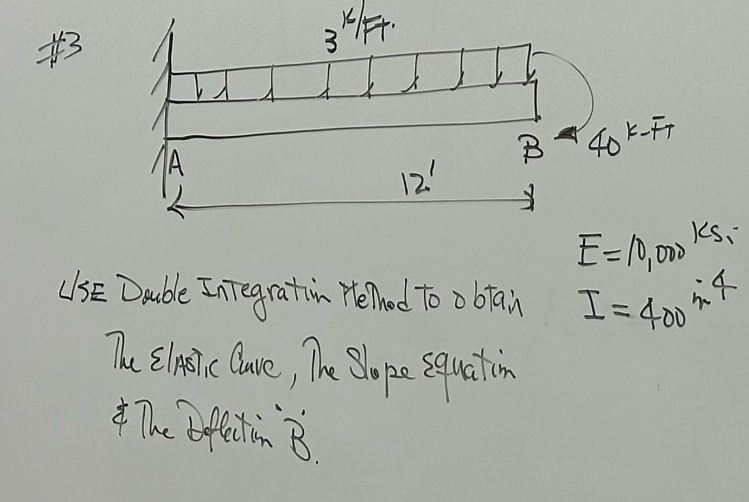 #3
3 K/Ft.
A
B
40 K-Ft
12'
E=10,000 ksi
I=400 in4
USE Double Integration Method to obtain
The Elastic Curve, The Slope Equation
& The Deflection "B".